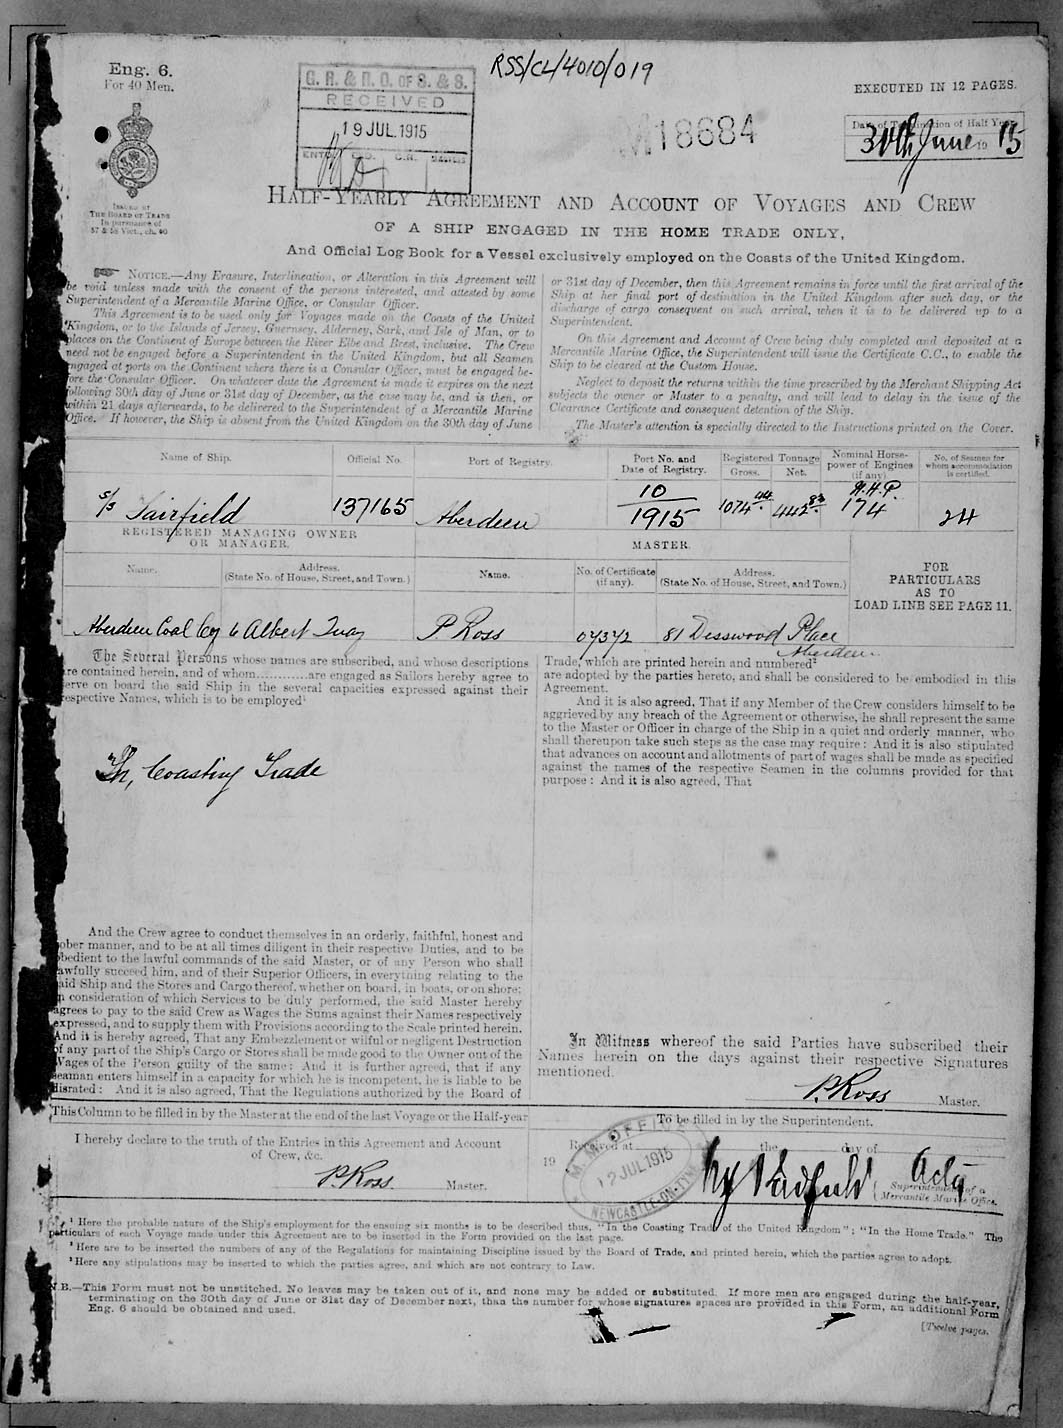 RSS/CL/4010/019
Eng. 6.
For 40 Men.
G. R. & R. O. OF S. & S.
RECEIVED
19 JUL. 1915
EXECUTED IN 12 PAGES.
M18684
Date of Termination of Half Year
30th June 1915
ISSUED BY
THE BOARD OF TRADE
In pursuance of
57 & 58 Vict., ch. 60
HALF-YEARLY AGREEMENT AND ACCOUNT OF VOYAGES AND CREW
OF A SHIP ENGAGED IN THE HOME TRADE ONLY,
And Official Log Book for a Vessel exclusively employed on the Coasts of the United Kingdom.
NOTICE.—Any Erasure, Interlineation, or Alteration in this Agreement will
be void unless made with the consent of the persons interested, and attested by some
Superintendent of a Mercantile Marine Office, or Consular Officer.
This Agreement is to be used only for Voyages made on the Coasts of the United
Kingdom, or to the Islands of Jersey, Guernsey, Alderney, Sark, and Isle of Man, or to
places on the Continent of Europe between the River Elbe and Brest, inclusive. The Crew
need not be engaged before a Superintendent in the United Kingdom, but all Seamen
engaged at ports on the Continent where there is a Consular Officer, must be engaged be-
fore the Consular Officer. On whatever date the Agreement is made it expires on the next
following 30th day of June or 31st day of December, as the case may be, and is then, or
within 21 days afterwards, to be delivered to the Superintendent of a Mercantile Marine
Office. If however, the Ship is absent from the United Kingdom on the 30th day of June
or 31st day of December, then this Agreement remains in force until the first arrival of the
Ship at her final port of destination in the United Kingdom after such day, or the
discharge of cargo consequent on such arrival, when it is to be delivered up to a
Superintendent.
On this Agreement and Account of Crew being duly completed and deposited at a
Mercantile Marine Office, the Superintendent will issue the Certificate C.C., to enable the
Ship to be cleared at the Custom House.
Neglect to deposit the returns within the time prescribed by the Merchant Shipping Act
subjects the owner or Master to a penalty, and will lead to delay in the issue of the
Clearance Certificate and consequent detention of the Ship.
The Master's attention is specially directed to the Instructions printed on the Cover.
Name of Ship. Official No. Port of Registry. Port No. and Date of Registry. Registered Tonnage Gross. Net. Nominal Horse-power of Engines (if any) No. of Seamen for whom accommodation is certified.
s/s Fairfield 137165 Aberdeen 10/1915 1074.44 442.83 N.H.P. 174 24
REGISTERED MANAGING OWNER
OR MANAGER.
MASTER.
Name. Address. (State No. of House, Street, and Town.) Name. No. of Certificate (if any). Address. (State No. of House, Street, and Town.)
FOR
PARTICULARS
AS TO
LOAD LINE SEE PAGE 11.
Aberdeen Coal Coy 6 Albert Quay P Ross 04372 81 Desswood Place
Aberdeen
The Several Persons whose names are subscribed, and whose descriptions
are contained herein, and of whom............are engaged as Sailors hereby agree to
serve on board the said Ship in the several capacities expressed against their
respective Names, which is to be employed¹
In, Coasting Trade
And the Crew agree to conduct themselves in an orderly, faithful, honest and
sober manner, and to be at all times diligent in their respective Duties, and to be
obedient to the lawful commands of the said Master, or of any Person who shall
lawfully succeed him, and of their Superior Officers, in everything relating to the
said Ship and the Stores and Cargo thereof, whether on board, in boats, or on shore;
in consideration of which Services to be duly performed, the said Master hereby
agrees to pay to the said Crew as Wages the Sums against their Names respectively
expressed, and to supply them with Provisions according to the Scale printed herein.
And it is hereby agreed, That any Embezzlement or wilful or negligent Destruction
of any part of the Ship's Cargo or Stores shall be made good to the Owner out of the
Wages of the Person guilty of the same: And it is further agreed, that if any
Seaman enters himself in a capacity for which he is incompetent, he is liable to be
disrated: And it is also agreed, That the Regulations authorized by the Board of
Trade, which are printed herein and numbered²
are adopted by the parties hereto, and shall be considered to be embodied in this
Agreement.
And it is also agreed, That if any Member of the Crew considers himself to be
aggrieved by any breach of the Agreement or otherwise, he shall represent the same
to the Master or Officer in charge of the Ship in a quiet and orderly manner, who
shall thereupon take such steps as the case may require: And it is also stipulated
that advances on account and allotments of part of wages shall be made as specified
against the names of the respective Seamen in the columns provided for that
purpose: And it is also agreed, That
In Witness whereof the said Parties have subscribed their
Names herein on the days against their respective Signatures
mentioned.
P. Ross Master.
This Column to be filled in by the Master at the end of the last Voyage or the Half-year
I hereby declare to the truth of the Entries in this Agreement and Account
of Crew, &c.
P. Ross Master.
To be filled in by the Superintendent.
Received at the day of
19
M. M. OFFICE
12 JUL 1915
NEWCASTLE-ON-TYNE
Actg
Superintendent of a
Mercantile Marine Office.
¹ Here the probable nature of the Ship's employment for the ensuing six months is to be described thus, "In the Coasting Trade of the United Kingdom"; "In the Home Trade." The
particulars of each Voyage made under this Agreement are to be inserted in the Form provided on the last page.
² Here are to be inserted the numbers of any of the Regulations for maintaining Discipline issued by the Board of Trade, and printed herein, which the parties agree to adopt.
³ Here any stipulations may be inserted to which the parties agree, and which are not contrary to Law.
N.B.—This Form must not be unstitched. No leaves may be taken out of it, and none may be added or substituted. If more men are engaged during the half-year,
terminating on the 30th day of June or 31st day of December next, than the number for whose signatures spaces are provided in this Form, an additional Form
Eng. 6 should be obtained and used.
[Twelve pages.